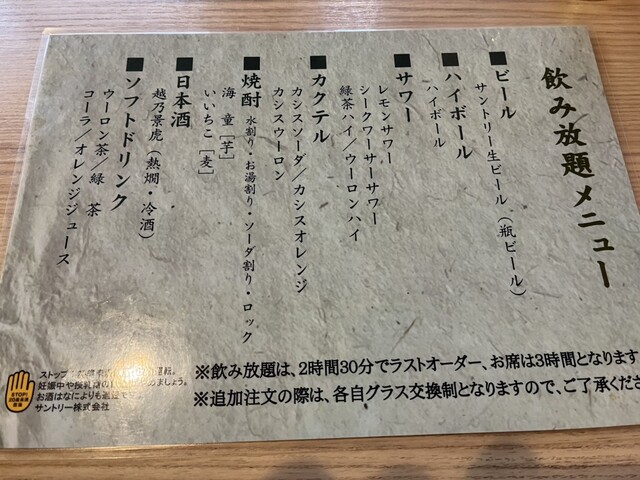 飲み放題メニュー
■ビール
サントリー生ビール（瓶ビール）
■ハイボール
ハイボール
■サワー
レモンサワー
シークワーサーサワー
緑茶ハイ／ウーロンハイ
■カクテル
カシスソーダ／カシスオレンジ
カシスウーロン
■焼酎 水割り・お湯割り・ソーダ割り・ロック
海 童［芋］
いいちこ［麦］
■日本酒
越乃景虎（熱燗・冷酒）
■ソフトドリンク
ウーロン茶／緑 茶
コーラ／オレンジジュース
※飲み放題は、2時間30分でラストオーダー、お席は3時間となります
※追加注文の際は、各自グラス交換制となりますので、ご了承くださ
ストップ！ 運転。
妊娠中や授乳期の めましょう。
お酒はなによりも適量で
サントリー株式会社
STOP!